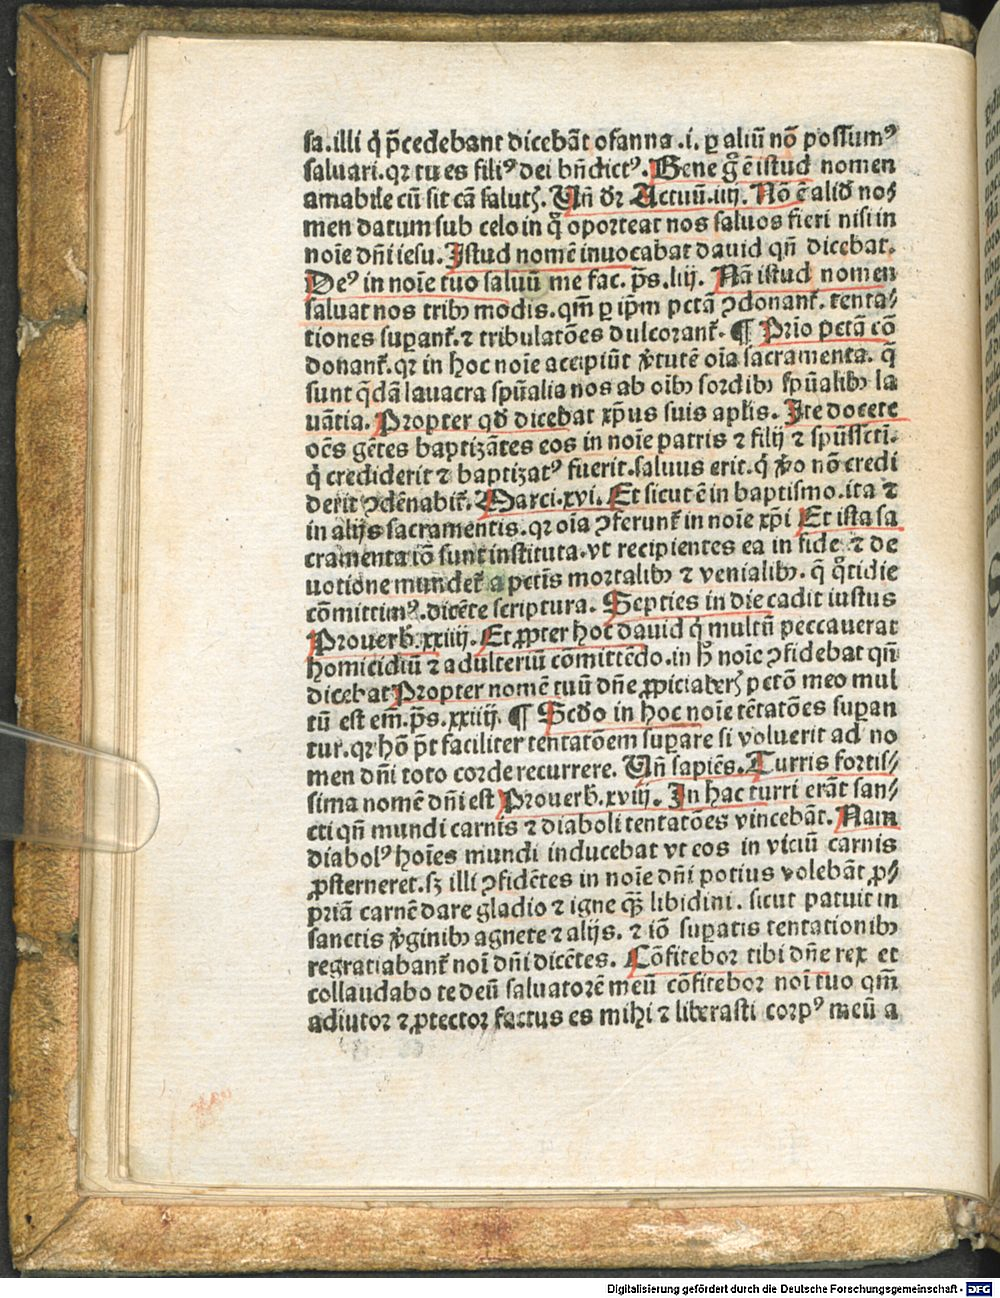 sa.illi q̇ p̄cedebant dicebāt osanna.i. ꝑ aliū nō possumꝰ
saluari.qꝛ tu es filiꝰ dei bn̄dictꝰ. Bene gͦ ē istud nomen
amabile cū sit cā salutꝭ. Vn̄ dꝛ Actuū.iiij. Nō ē aliđ no⸗
men datum sub celo in qͦ oporteat nos saluos fieri nisi in
noīe dn̄i iesu. Istud nomē inuocabat dauid qn̄ dicebat.
Deꝰ in noīe tuo saluū me fac. p̄s.liij. Nā istud nomen
saluat nos tribꝫ modis. qm̄ ꝑ ip̄m pctā ꝯdonant᷑. tenta⸗
tiones suꝑant᷑. ⁊ tribulatōes dulcorant᷑. ¶ Prīo pctā cō
donant᷑. qꝛ in hoc noīe accipiūt v̓tutē oīa sacramenta. q̄
sunt q̄dā lauacra spūalia nos ab oībꝫ sordibꝫ spūalibꝫ la
uātia. Propter qđ dicebat xp̄us suis aplis. Ite docete
oēs gētes baptizātes eos in noīe patris ⁊ filij ⁊ spūssctī.
q̇ crediderit ⁊ baptizatꝰ fuerit.saluus erit.q̇ v̓o nō credi
derit ꝯdēnabit᷑. Marci.xvi. Et sicut ē in baptismo.ita ⁊
in alijs sacramentis.qꝛ oīa ꝯferunt᷑ in noīe xp̄i Et ista sa
cramenta iō sunt instituta.vt recipientes ea in fide ⁊ de
uotione mundet᷑ a pctīs mortalibꝫ ⁊ venialibꝫ. q̄ qͦtidie
cōmittimꝰ.dicēte scriptura. Septies in die cadit iustus
Prouerƀ.xxiiij. Et ꝓpter hoc dauid q̇ multū peccauerat
homicidiū ⁊ adulteriū cōmittēdo.in hͦ noīe ꝯfidebat qn̄
dicebat Propter nomē tuū dn̄e ꝓpiciaberꝭ pctō meo mul
tū est em̄.p̄s.xxiiij. ¶ Scđo in hoc noīe tētatōes suꝑan
tur.qꝛ hō p̄t faciliter tentatōem suꝑare si voluerit ad no
men dn̄i toto corde recurrere. Vn̄ sapiēs. Turris fortis⸗
sima nomē dn̄i est Prouerƀ.xviij. In hac turri erāt san⸗
cti qn̄ mundi carnis ⁊ diaboli tentatōes vincebāt. Nam
diabolꝰ hoīes mundi inducebat vt eos in viciū carnis
ꝓsterneret.sꝫ illi ꝯfidētes in noīe dn̄i potius volebāt ꝓ⸗
priā carnē dare gladio ⁊ igne qꝫ̄ libidini. sicut patuit in
sanctis v̓ginibꝫ agnete ⁊ alijs. ⁊ iō suꝑatis tentationibꝫ
regratiabant᷑ noī dn̄i dicētes. Cōfitebor tibi dn̄e rex et
collaudabo te deū saluatorē meū cōfitebor noī tuo qm̄
adiutor ⁊ ꝓtector factus es mihi ⁊ liberasti corpꝰ meū a
Digitalisierung gefördert durch die Deutsche Forschungsgemeinschaft - DFG